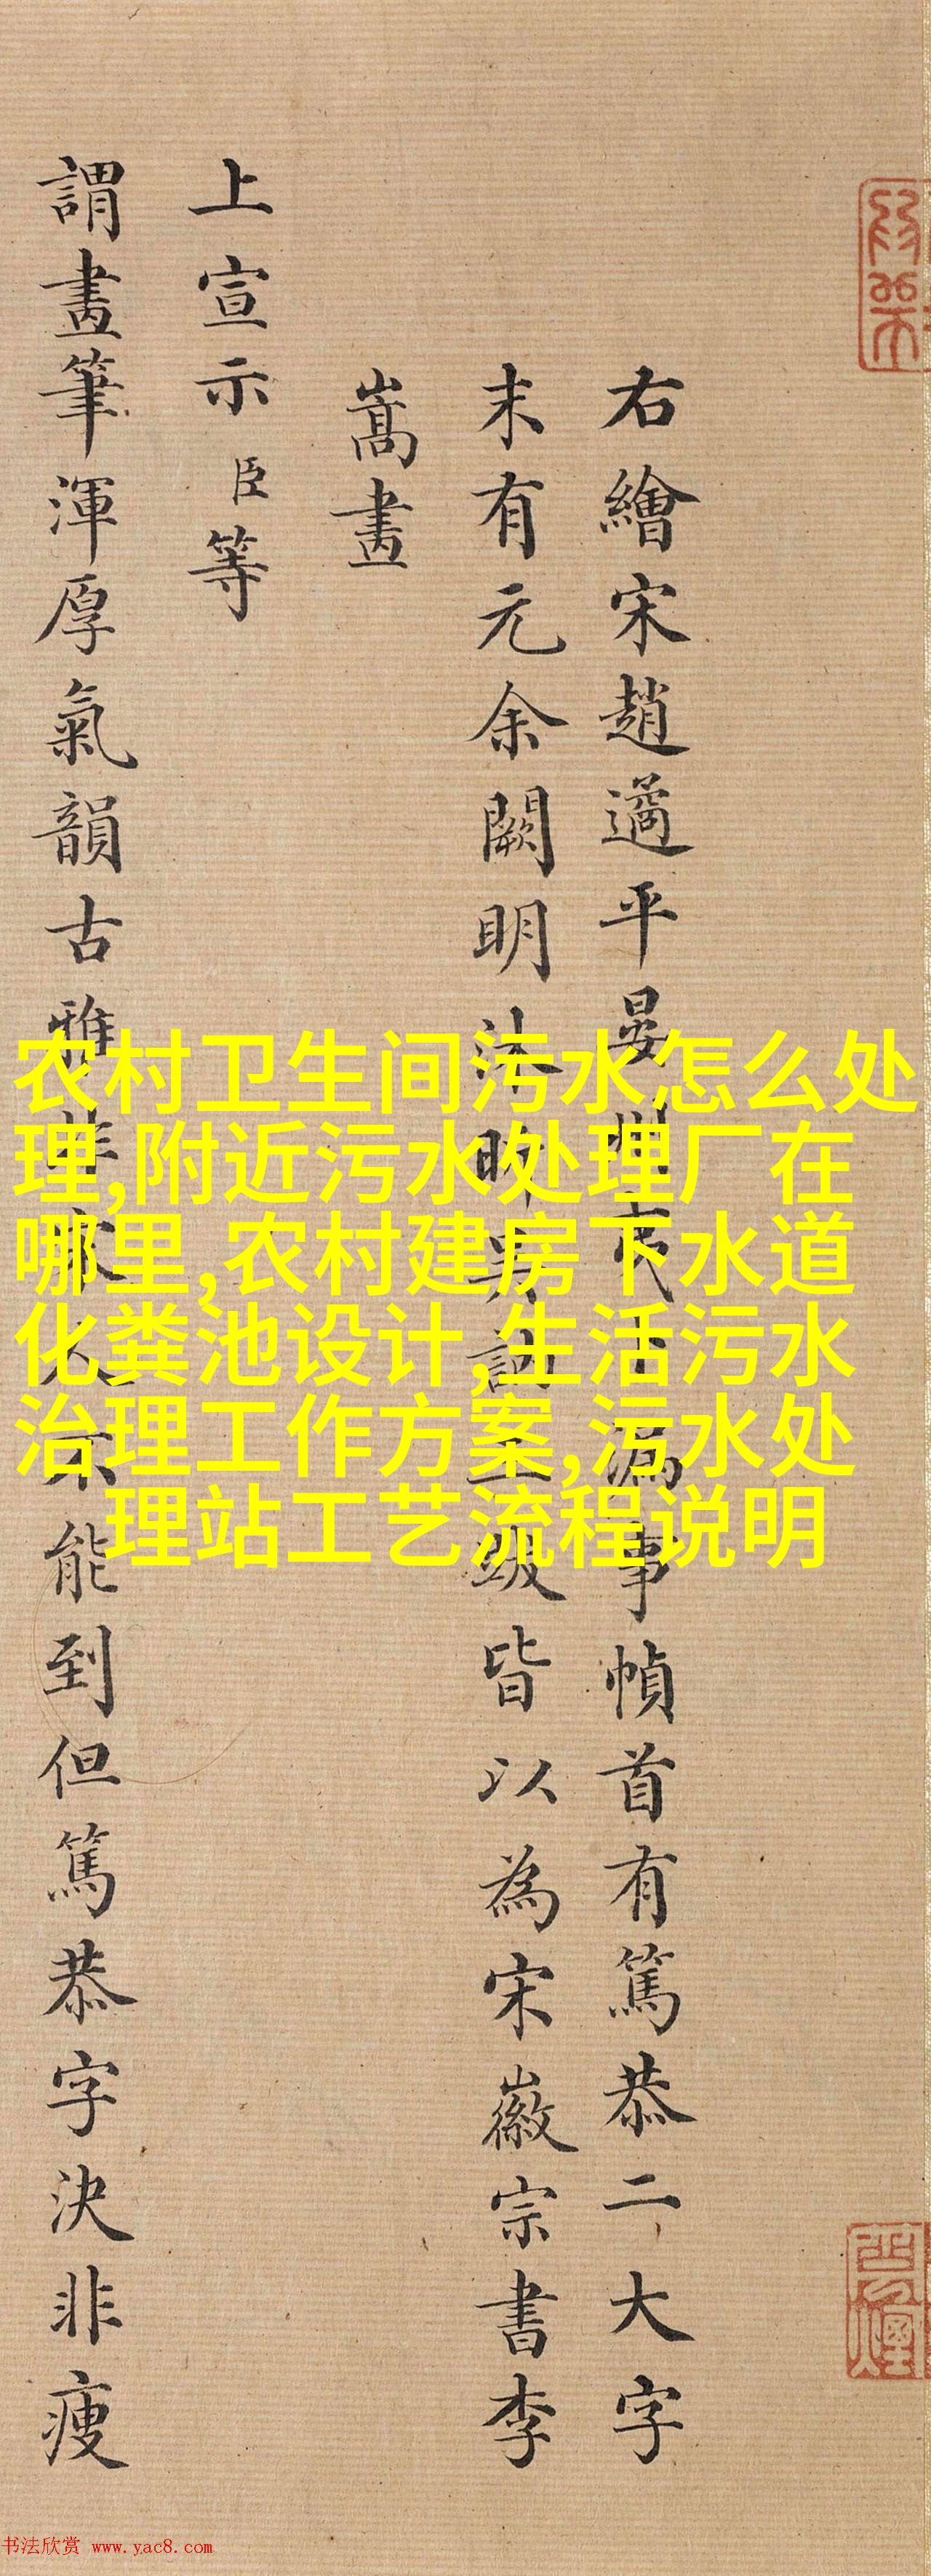 右繪宋趙遹平晏州夷卜漏事幀首有篤恭二大字
末有元余闕明沐昕吳訥三跋皆以為宋徽宗書李
嵩畫
上宣示臣等
謂畫筆渾厚氣韻古雅非宋人不能到但篤恭字決非瘦
农村卫生间污水怎么处
理,附近污水处理厂在
哪里,农村建房下水道
化粪池设计,生活污水
治理工作方案,污水处
理站工艺流程说明
书法欣赏 www.yac8.com